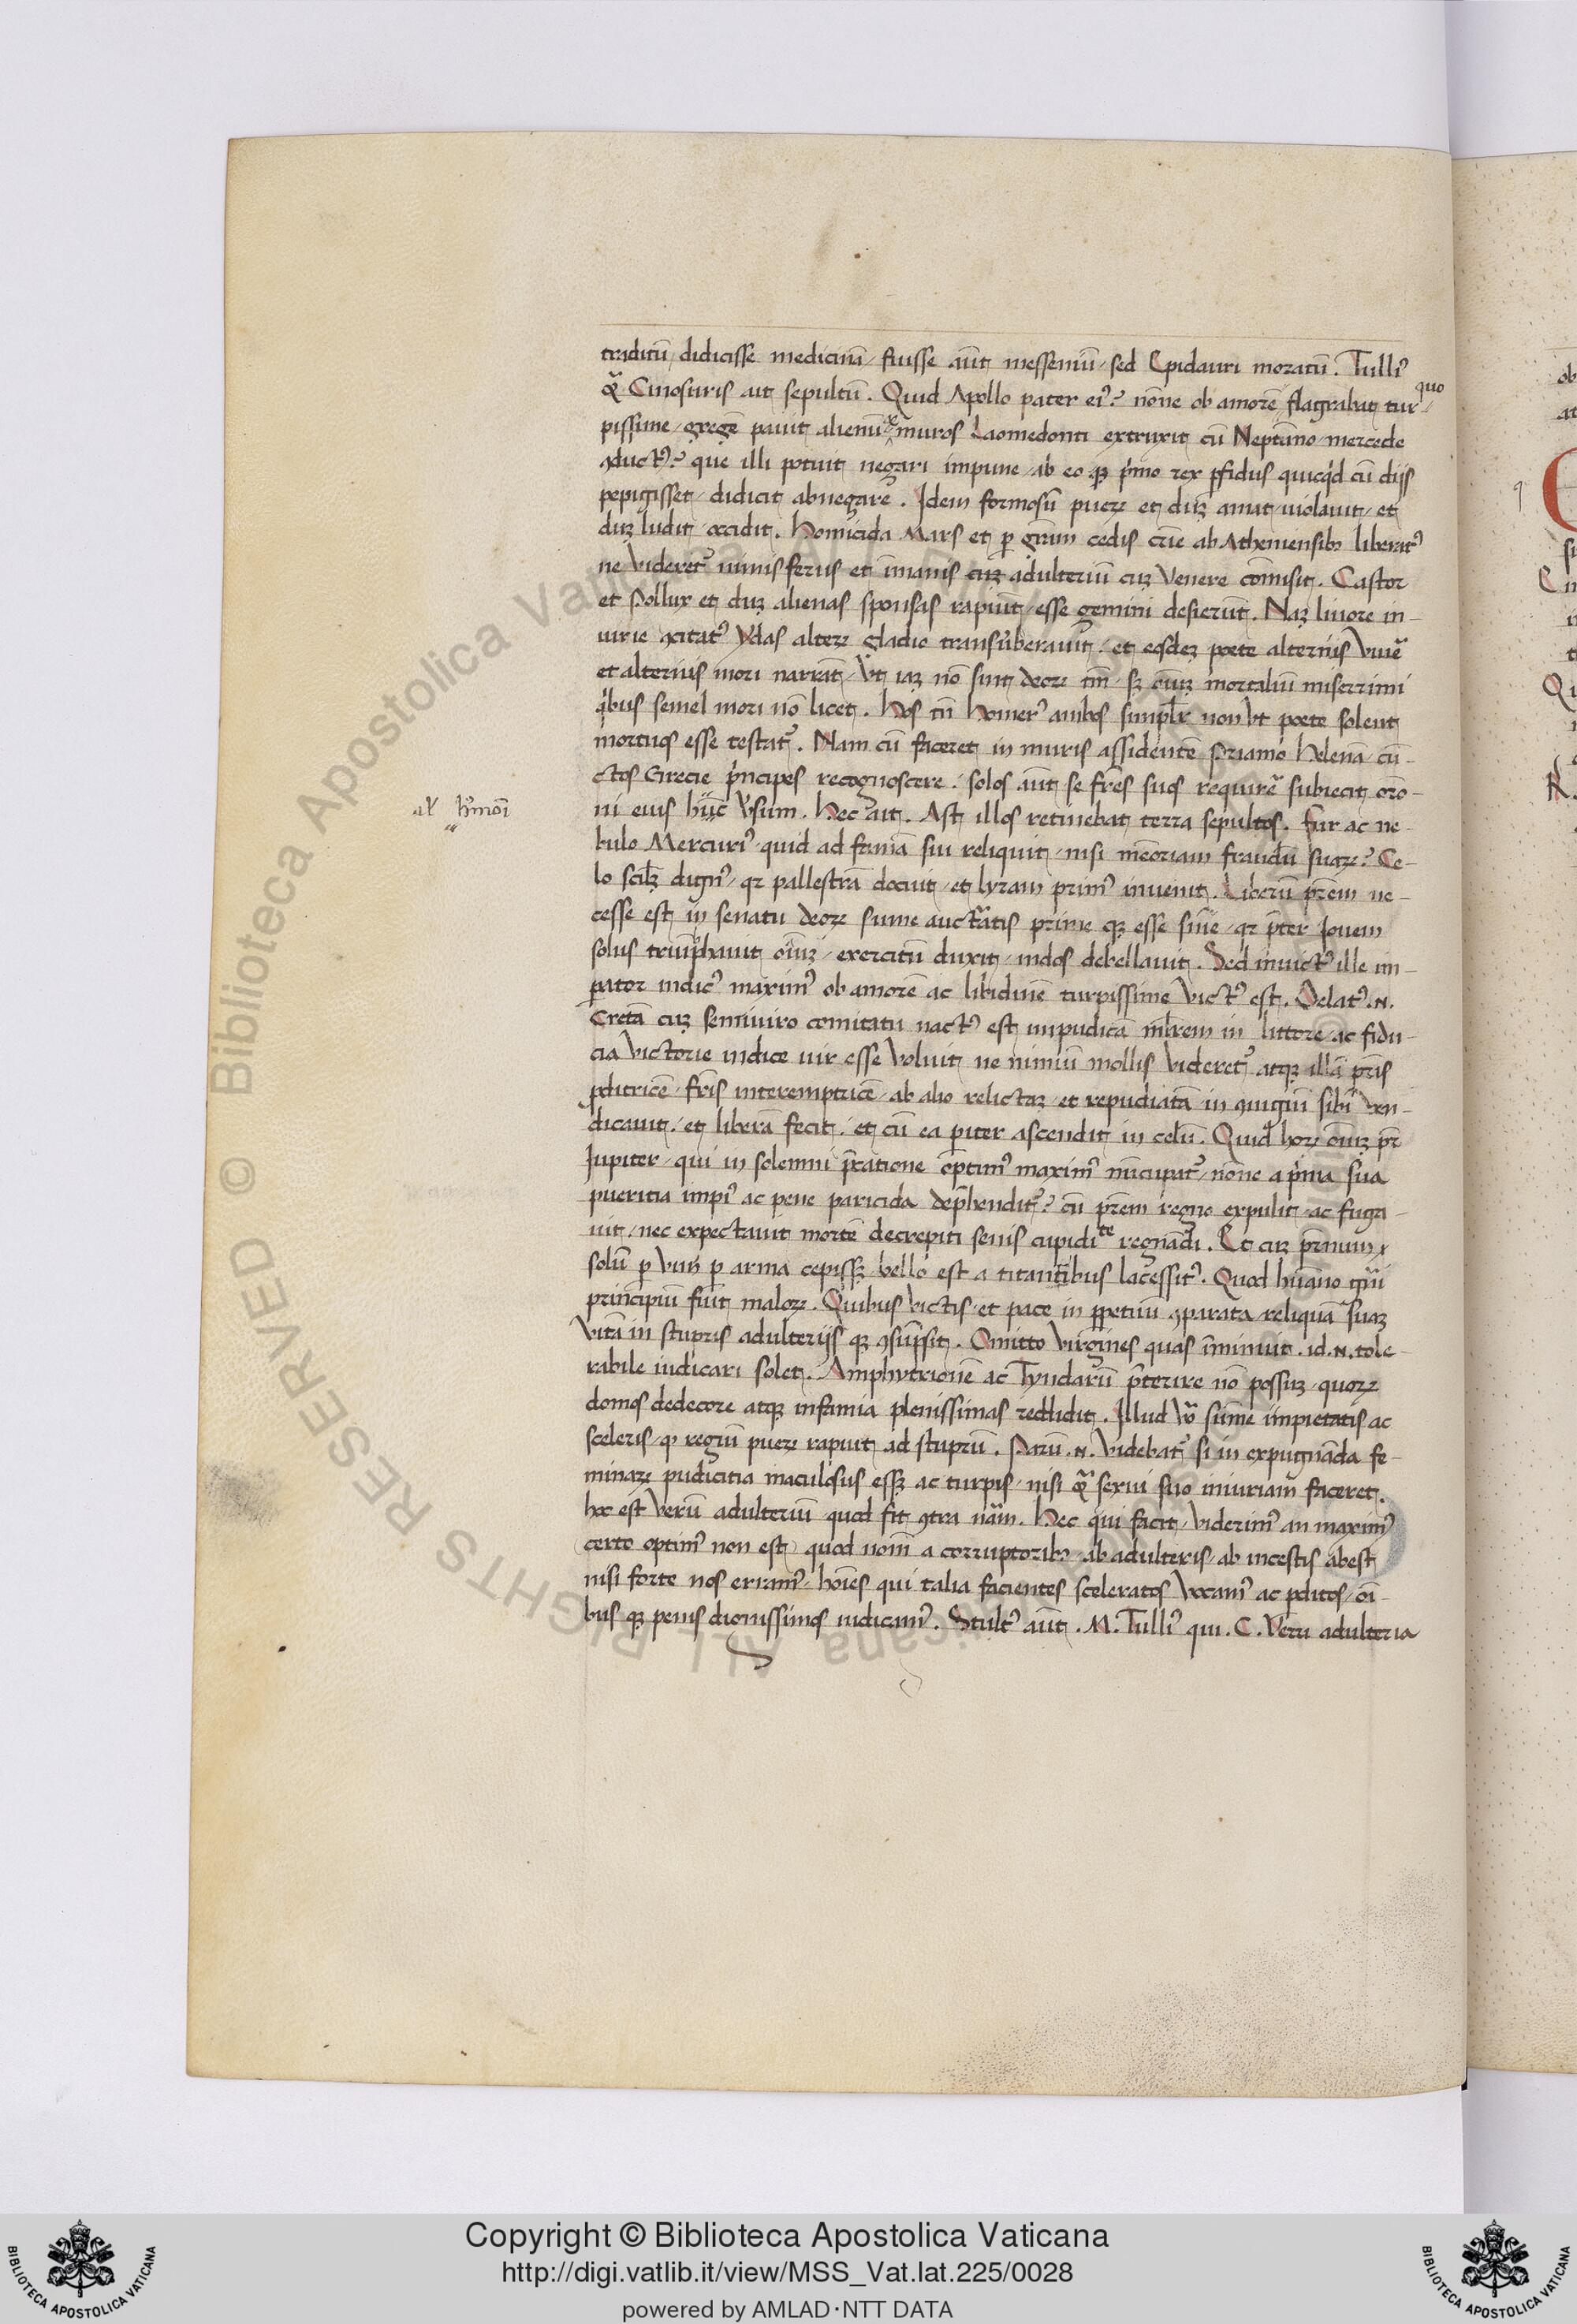 traditū didicisse medicinā fuisse aūt messeniū sed Epidauri moratū. Tulliꝰ
qͣ Cinosuris ait sepultū. Quid Apollo pater eiꝰ? nōne ob amorē flagrabat tur
quo
pissime gregē pavit alienū muros Laomedonti extruxit cū Neptūno mercede
ꝯductꝰ? que illi potuit negari impune ab eo qꝫ pͥmo rex ꝑfidus quicqͥd cū dijs
pepigisset didicit abnegare. Idem formosū pueꝝ et duꝫ amat violavit et
duꝫ ludit occidit. Homicida Mars et ꝑ grām cedis crīe ab Atheniensibꝫ liberatꝰ
ne videretꝰ nimis ferus et īmanis cuꝫ adulteriū cuꝫ Venere cōmisit. Castor
et Pollux et duꝫ alienas sponsas rapiūt esse gemini desierūt. Naꝫ livore in-
iurie ꝯcitatꝰ Ydas alteꝝ gladio transūberavit. et eosdeꝫ poete alternis viuē
et alterius mori narrāt vt iaꝫ nō sint deoꝝ tm̄ sꝫ oīuꝫ mortaliū miserrimi
qͥbus semel mori nō licet. Hos tn̄ Homerꝰ ambos simplr̄ non vt poete solent
mortuos esse testatꝰ. Nam cū faceret in muris assidentē Priamo Helenā cū-
ctos Grecie pͥncipes recognoscere. solos aūt se fr̄es suos requirē subiecit orō-
ni eius hūc vꝰsum. Hec ait. Ast illos retinebat terra sepultos. Fur ac ne-
al' hꝰmōi
bulo Mercuriꝰ quid ad famā sui reliquit nisi mēoriam fraudū suaꝝ? Ce-
lo scilꝫ dignꝰ qꝛ pallestrā docuit et lyram primꝰ invenit. Liberū pr̄em ne-
cesse est in senatu deoꝝ sume auctātis prime qꝫ esse snīe qꝛ p̄ter Iouem
solus triūphavit oīuꝫ exercitū duxit indos debellavit. Sed invictꝰ ille im-
ꝑator indicꝰ maximꝰ ob amorē ac libidinē turpissime victꝰ est. Delatꝰ .n.
Cretā cuꝫ semiviro comitatu nactꝰ est impudicā mĺrem in littore ac fidu-
cia victorie indice vir esse voluit ne nimiū mollis videretꝰ atqꝫ illā pr̄is
ꝓditricē fr̄is interemptricē ab alio relictaꝫ et repudiatā in ꝯiugiū sibi ven-
dicavit. et liberā fecit. et cū ea ꝑiter ascendit in celū. Quid hoꝝ oīuꝫ pr̄
Iupiter qui in solemni p̄catione optimꝰ maximꝰ nūcupatꝰ nōne a pͥma sua
pueritia impiꝰ ac pene paricida dep̄henditꝰ? cū pr̄em regno expulit ac fuga-
vit nec expectavit mortē decrepiti senis cupiditͤ regnādi. Et cuꝫ pr̄num
soliū ꝑ vim ꝑ arma cepissꝫ bello est a titantibus lacessitꝰ. Quod hūano gn̄i
principiū fuit maloꝝ. Quibus victis et pace in ꝑpetuū ꝯparata reliquā suaꝫ
vitā in stupris adulterijs qꝫ ꝯsūpsit. Omitto virgines quas īminuit. id .n. tole-
rabile iudicari solet. Amphytrionē ac Tyndarū p̄terire nō possuꝫ quoꝝ
domos dedecore atqꝫ infamia plenissimas reddidit. Illud vō sūme impietatis ac
sceleris qͥ regiū pueꝝ rapuit ad stuprū. Parū .n. videbatꝰ si in expugnāda fe-
minaꝝ pudicitia maculosus essꝫ ac turpis nisi qͣ sexui suo iniuriam faceret.
hoc est verū adulteriū quod fit ꝯtra nām. Hec qui facit viderimꝰ an maximꝰ
certe optimꝰ non est quod nom̄ a corruptoribꝫ ab adulteris ab incestis abest
nisi forte nos erramꝰ hoīes qui talia facientes sceleratos vocamꝰ ac ꝓditos oī-
bus qꝫ penis dignissimos iudicamꝰ. Stultꝰ aūt .M. Tulliꝰ qui .C. Veri adulteria
Copyright © Biblioteca Apostolica Vaticana
http://digi.vatlib.it/view/MSS_Vat.lat.225/0028
powered by AMLAD·NTT DATA